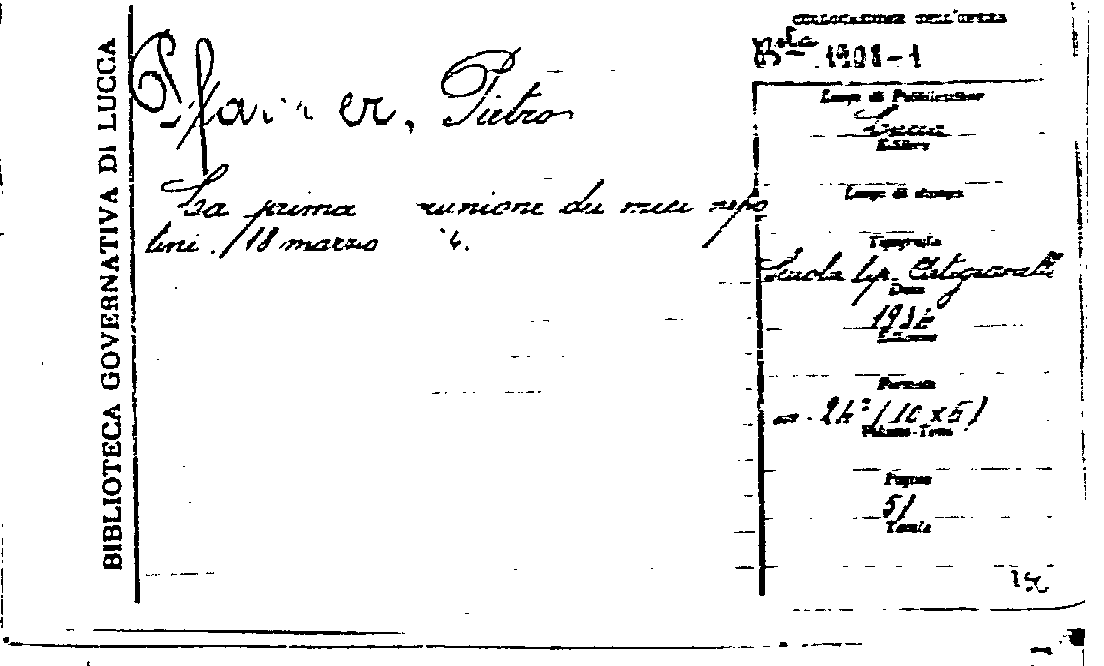 BIBLIOTECA GOVERNATIVA DI LUCCA
Pietro
La prima riunione dei miei nepo
tini. 18 marzo
COLLOCAZIONE DELL'OPERA
Bta 1981-1
Luogo di Pubblicazione
Lucca
Editore
Luogo di stampa
Tipografia
Scuola tip. Artigianelli
Data
Volume
Formato
24° (10 x 6)
Pagine
51
Tavole